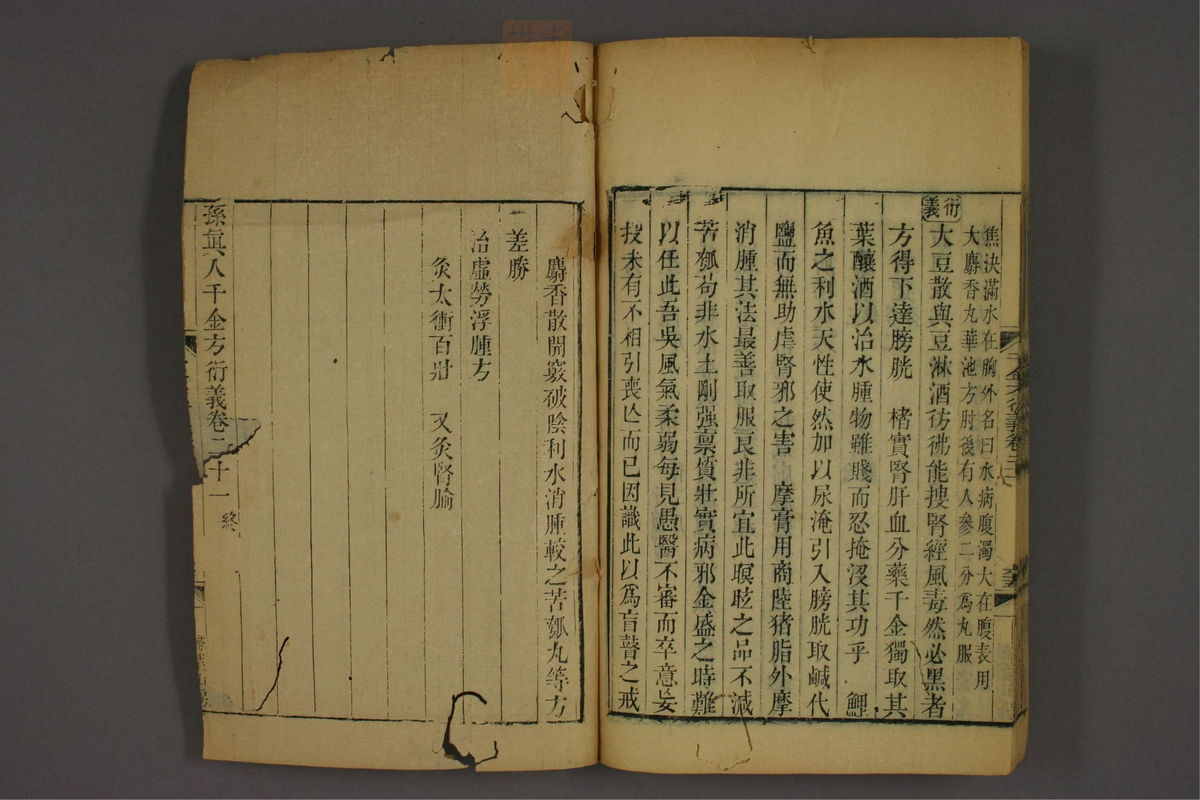 焦決滿水在胸外名曰水病腹獨大在腹表用
大麝香丸華池方肘後有人參二分爲丸服
衍義
大豆散與豆淋酒彷彿能摟腎經風毒然必黑者
方得下達膀胱 楮實腎肝血分藥千金獨取其
葉釀酒以治水腫物雖賤而忍掩沒其功乎 鯉
魚之利水天性使然加以尿淹引入膀胱取鹹代
鹽而無助虐腎邪之害 摩膏用商陸猪脂外摩
消腫其法最善取服良非所宜此暝眩之品不減
苦瓠茍非水土剛强稟質壯實病邪全盛之時難
以任此吾吳風氣柔弱每見愚醫不審而卒意妄
投未有不相引喪亾而已因識此以爲盲瞽之戒
千金方衍義卷二十一
麝香散開竅破陰利水消腫較之苦瓠丸等方
差勝
治虛勞浮腫方
灸太衝百壯 又灸腎腧
孫眞人千金方衍義卷二十一 終